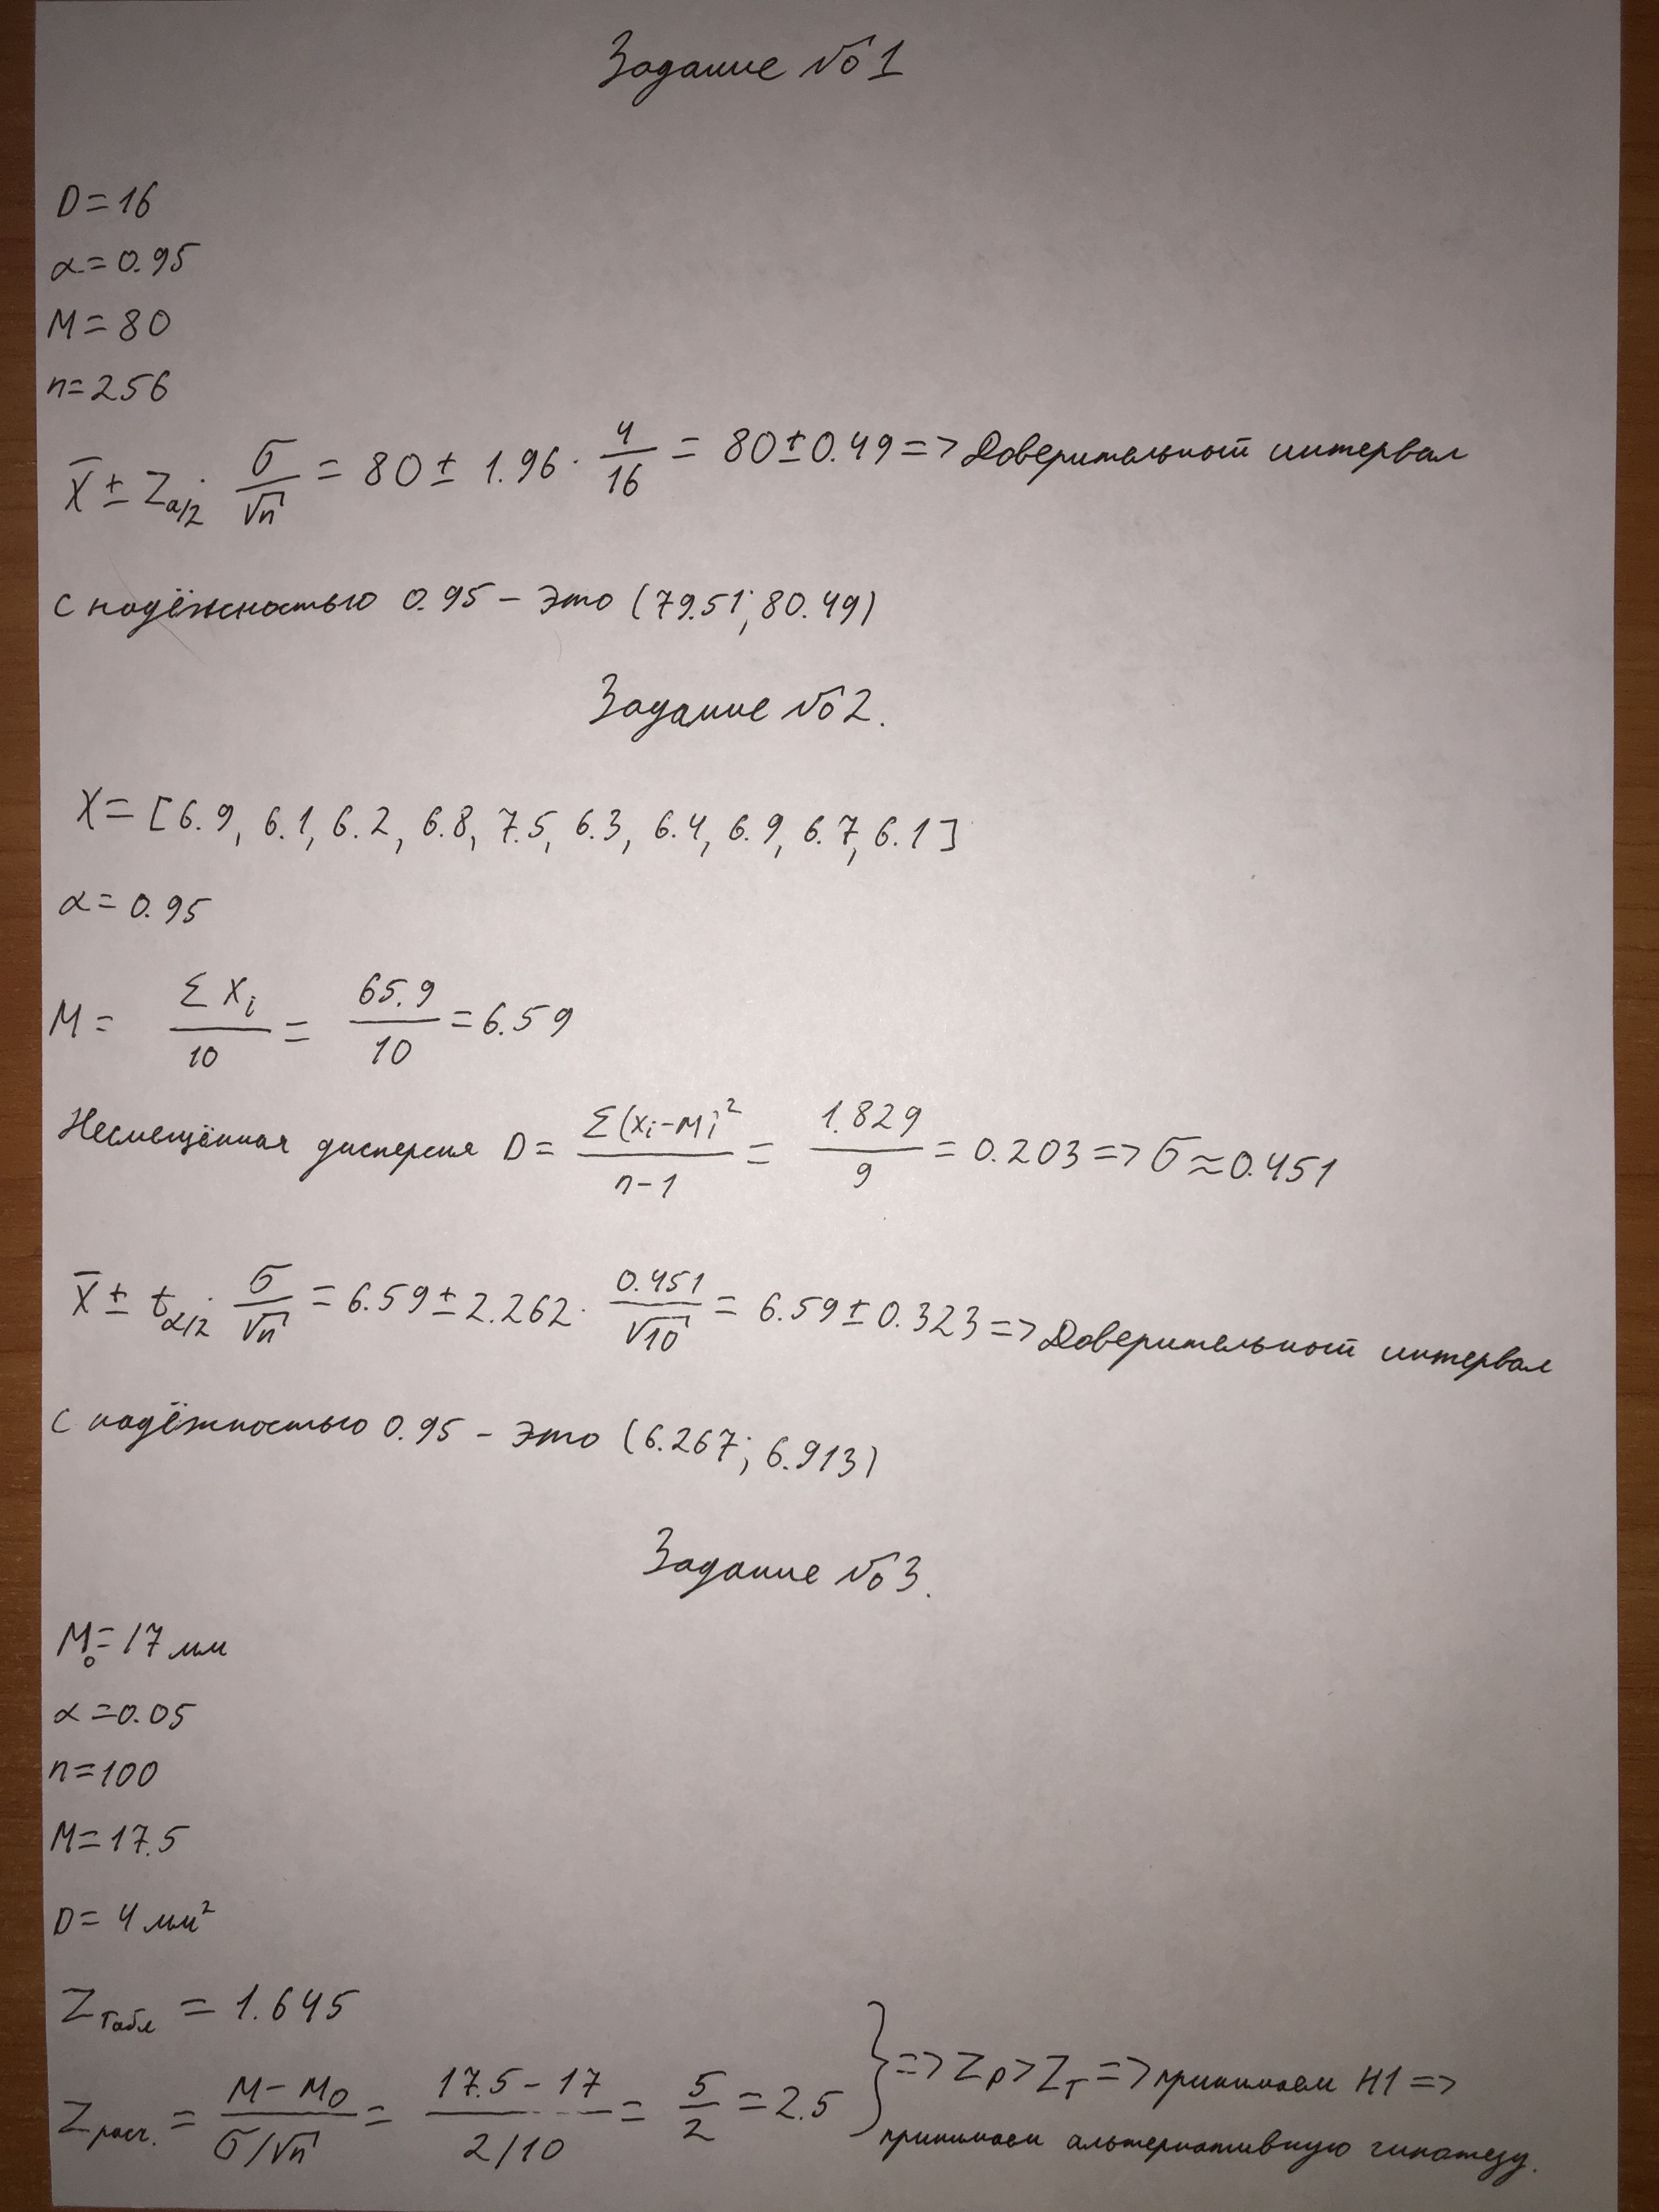 Задание №1
D=16
α=0.95
M=80
n=256
X̄ ± Z_α/2 · σ/√n = 80 ± 1.96 · 4/16 = 80±0.49 => Доверительный интервал
с надёжностью 0.95 – это (79.51; 80.49)
Задание №2.
X= [6.9, 6.1, 6.2, 6.8, 7.5, 6.3, 6.4, 6.9, 6.7, 6.1]
α=0.95
M = Σ Xi / 10 = 65.9 / 10 = 6.59
Несмещённая дисперсия D = Σ(xi-M)² / n-1 = 1.829 / 9 = 0.203 => σ ≈ 0.451
X̄ ± t_α/2 · σ/√n = 6.59 ± 2.262 · 0.451/√10 = 6.59 ± 0.323 => Доверительный интервал
с надёжностью 0.95 – это (6.267; 6.913)
Задание №3.
M₀=17 мм
α=0.05
n=100
M=17.5
D= 4 мм²
Z табл = 1.645
Z расч. = M-M0 / σ/√n = 17.5-17 / 2/10 = 5/2 = 2.5 } => Zр > Zт => принимаем H1 =>
принимаем альтернативную гипотезу.